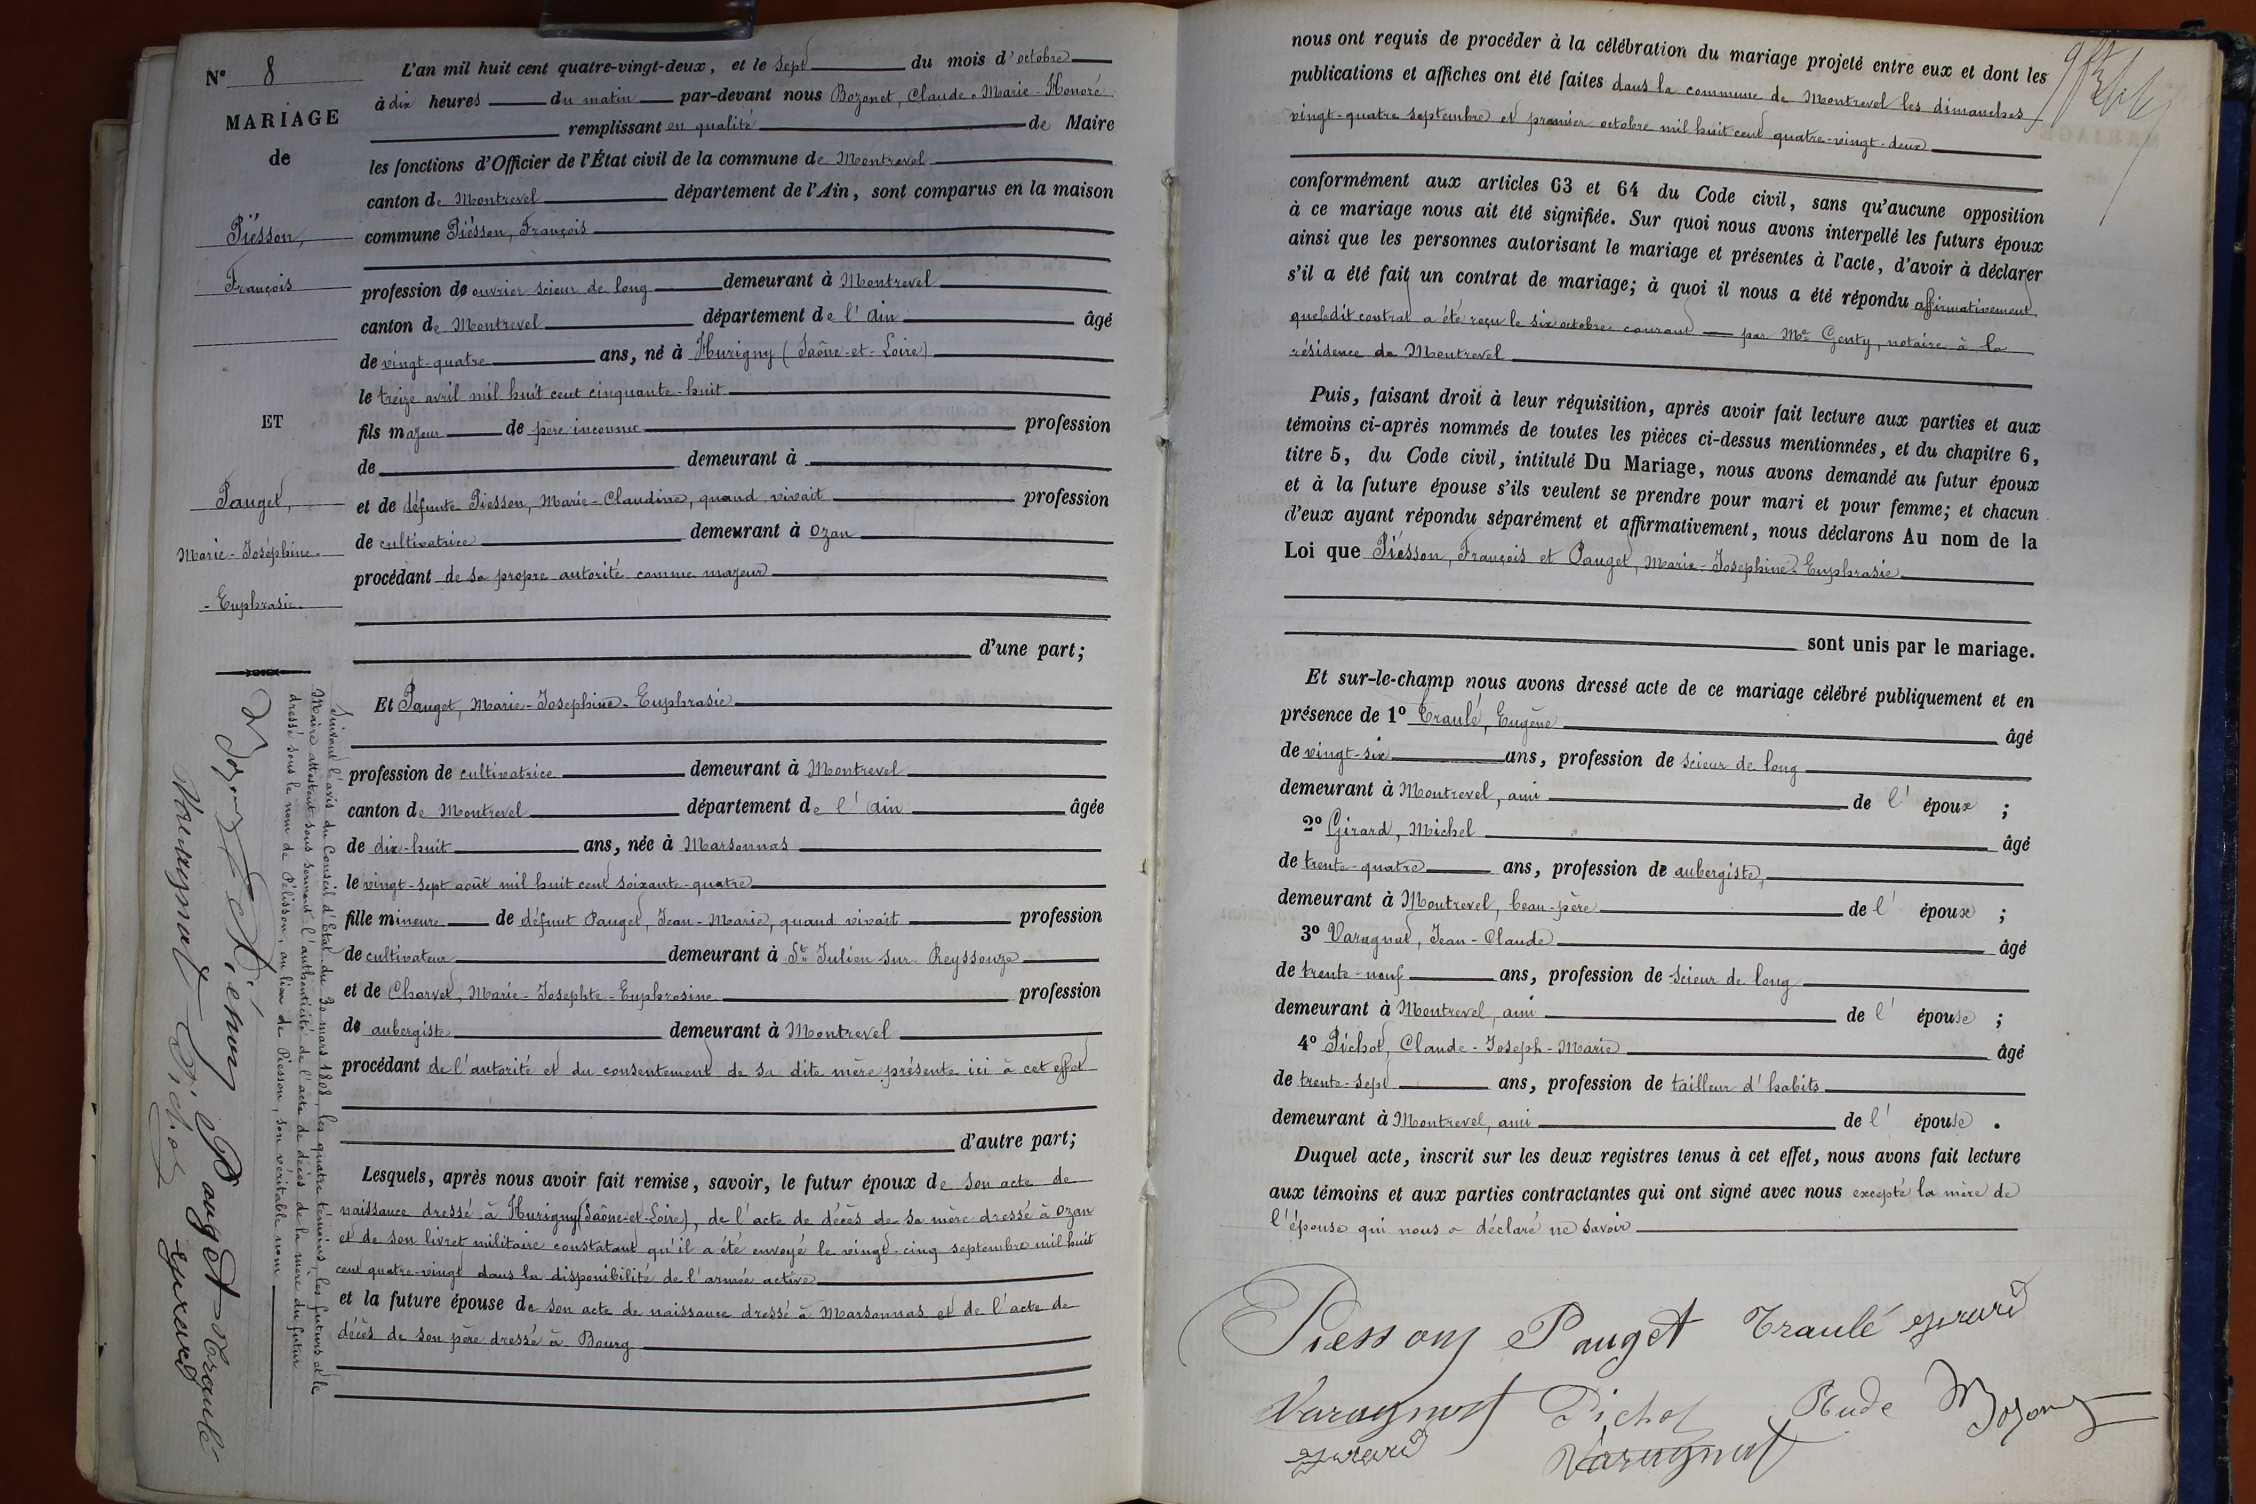 N° 8
MARIAGE
de
Piésson,
François
ET
Pauget,
Marie-Joséphine-
-Euphrasie-
L'an mil huit cent quatre-vingt-deux, et le sept du mois d'octobre
à dix heures du matin par-devant nous Bozonet, Claude-Marie-Honoré
remplissant en qualité de Maire
les fonctions d'Officier de l'État civil de la commune de Montrevel
canton de Montrevel département de l'Ain, sont comparus en la maison
commune Piésson, François
profession de ouvrier scieur de long demeurant à Montrevel
canton de Montrevel département de l'Ain âgé
de vingt-quatre ans, né à Hurigny (Saône-et-Loire)
le treize avril mil huit cent cinquante-huit
fils majeur de père inconnu profession
de demeurant à
et de défunte Piesson, Marie-Claudine, quand vivait profession
de cultivatrice demeurant à Ozan
procédant de sa propre autorité comme majeur
d'une part;
Et Pauget, Marie-Josephine-Euphrasie
profession de cultivatrice demeurant à Montrevel
canton de Montrevel département de l'Ain âgée
de dix-huit ans, née à Marsonnas
le vingt-sept août mil huit cent soixante-quatre
fille mineure de défunt Pauget, Jean-Marie, quand vivait profession
de cultivateur demeurant à St Julien-sur-Reyssouze
et de Charvet, Marie-Josephte-Euphrosine profession
de aubergiste demeurant à Montrevel
procédant de l'autorité et du consentement de sa dite mère présente ici à cet effet
d'autre part;
Lesquels, après nous avoir fait remise, savoir, le futur époux de son acte de
naissance dressé à Hurigny (Saône-et-Loire), de l'acte de décès de sa mère dressé à Ozan
et de son livret militaire constatant qu'il a été envoyé le vingt-cinq septembre mil huit
cent quatre-vingt dans la disponibilité de l'armée active
et la future épouse de son acte de naissance dressé à Marsonnas et de l'acte de
décès de son père dressé à Bourg
Suivant l'avis du Conseil d'Etat du 30 mars 1808, les quatre témoins, les futurs et le
Maire attestent sous serment l'authenticité de l'acte de décès de la mère du futur
dressé sous le nom de Pélisson, au lieu de Piesson, son véritable nom
Pauget Traulé
Varagnat Pichot Girard
nous ont requis de procéder à la célébration du mariage projeté entre eux et dont les
publications et affiches ont été faites dans la commune de Montrevel les dimanches
vingt-quatre septembre et premier octobre mil huit cent quatre-vingt-deux
conformément aux articles 63 et 64 du Code civil, sans qu'aucune opposition
à ce mariage nous ait été signifiée. Sur quoi nous avons interpellé les futurs époux
ainsi que les personnes autorisant le mariage et présentes à l'acte, d'avoir à déclarer
s'il a été fait un contrat de mariage; à quoi il nous a été répondu affirmativement
que ledit contrat a été reçu le six octobre courant par Me Genty, notaire à la
résidence de Montrevel
Puis, faisant droit à leur réquisition, après avoir fait lecture aux parties et aux
témoins ci-après nommés de toutes les pièces ci-dessus mentionnées, et du chapitre 6,
titre 5, du Code civil, intitulé Du Mariage, nous avons demandé au futur époux
et à la future épouse s'ils veulent se prendre pour mari et pour femme; et chacun
d'eux ayant répondu séparément et affirmativement, nous déclarons Au nom de la
Loi que Piésson, François et Pauget, Marie-Josephine-Euphrasie
sont unis par le mariage.
Et sur-le-champ nous avons dressé acte de ce mariage célébré publiquement et en
présence de 1° Traulé, Eugène âgé
de vingt-six ans, profession de scieur de long
demeurant à Montrevel, ami de l'époux ;
2° Girard, Michel âgé
de trente-quatre ans, profession de aubergiste,
demeurant à Montrevel, beau-père de l'époux ;
3° Varagnat, Jean-Claude âgé
de trente-neuf ans, profession de scieur de long
demeurant à Montrevel, ami de l'épouse ;
4° Pichot, Claude-Joseph-Marie âgé
de trente-sept ans, profession de tailleur d'habits
demeurant à Montrevel, ami de l'épouse .
Duquel acte, inscrit sur les deux registres tenus à cet effet, nous avons fait lecture
aux témoins et aux parties contractantes qui ont signé avec nous excepté la mère de
l'épouse qui nous a déclaré ne savoir
Piesson Pauget Traulé girard
Varagnat Pichot Rude Bozonet
girard Varagnat